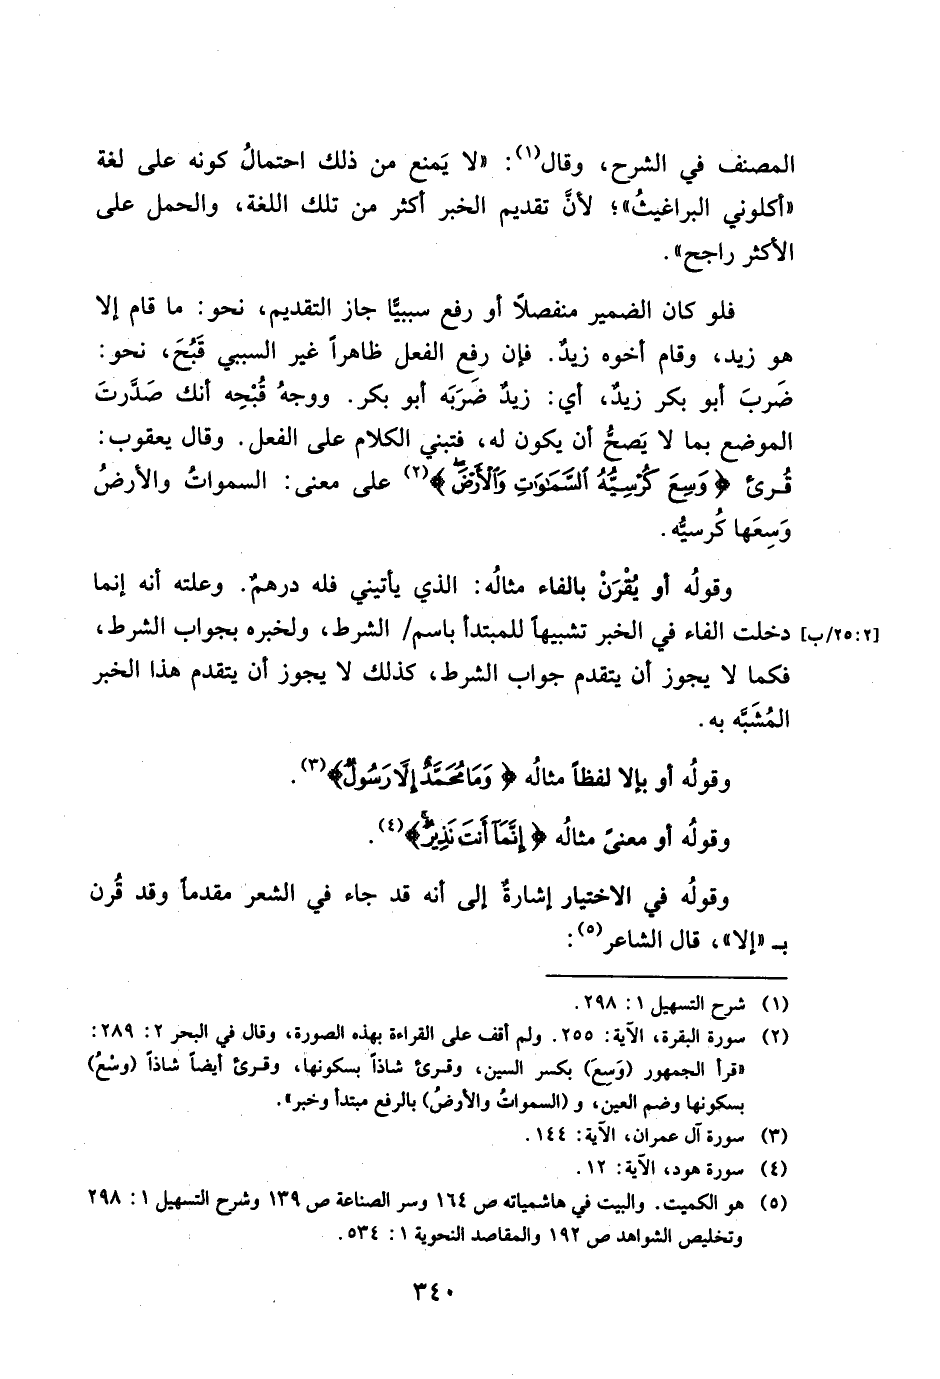 المصنف في الشرح، وقال(١): «لا يَمنع من ذلك احتمالُ كونه على لغة
«أكلوني البراغيثُ»؛ لأنَّ تقديم الخبر أكثر من تلك اللغة، والحمل على
الأكثر راجح».
فلو كان الضمير منفصلاً أو رفع سببيًّا جاز التقديم، نحو: ما قام إلا
هو زيد، وقام أخوه زيدٌ. فإن رفع الفعل ظاهراً غير السببي قَبُحَ، نحو:
ضَربَ أبو بكر زيدٌ، أي: زيدٌ ضَرَبَه أبو بكر. ووجهُ قُبْحِه أنك صَدَّرتَ
الموضع بما لا يَصحُّ أن يكون له، فتبني الكلام على الفعل. وقال يعقوب:
قُرئ ﴿وَسِعَ كُرْسِيُّهُ ٱلسَّمَٰوَٰتِ وَٱلْأَرْضَۖ﴾(٢) على معنى: السمواتُ والأرضُ
وَسِعَها كُرسيُّه.
وقولُه أو يُقْرَنْ بالفاء مثالُه: الذي يأتيني فله درهمٌ. وعلته أنه إنما
[٢:٢٥/ب] دخلت الفاء في الخبر تشبيهاً للمبتدأ باسم/ الشرط، ولخبره بجواب الشرط،
فكما لا يجوز أن يتقدم جواب الشرط، كذلك لا يجوز أن يتقدم هذا الخبر
المُشَبَّه به.
وقولُه أو بإلا لفظاً مثالُه ﴿وَمَا مُحَمَّدٌ إِلَّا رَسُولٌ﴾(٣).
وقولُه أو معنىً مثالُه ﴿إِنَّمَآ أَنتَ نَذِيرٌۚ﴾(٤).
وقولُه في الاختيار إشارةٌ إلى أنه قد جاء في الشعر مقدماً وقد قُرن
بـ «إلا»، قال الشاعر(٥):
(١) شرح التسهيل ١: ٢٩٨.
(٢) سورة البقرة، الآية: ٢٥٥. ولم أقف على القراءة بهذه الصورة، وقال في البحر ٢: ٢٨٩:
«قرأ الجمهور (وَسِعَ) بكسر السين، وقرئ شاذاً بسكونها، وقرئ أيضاً شاذاً (وسْعُ)
بسكونها وضم العين، و (السمواتُ والأرضُ) بالرفع مبتدأ وخبر».
(٣) سورة آل عمران، الآية: ١٤٤.
(٤) سورة هود، الآية: ١٢.
(٥) هو الكميت. والبيت في هاشمياته ص ١٦٤ وسر الصناعة ص ١٣٩ وشرح التسهيل ١: ٢٩٨
وتخليص الشواهد ص ١٩٢ والمقاصد النحوية ١: ٥٣٤.
٣٤٠